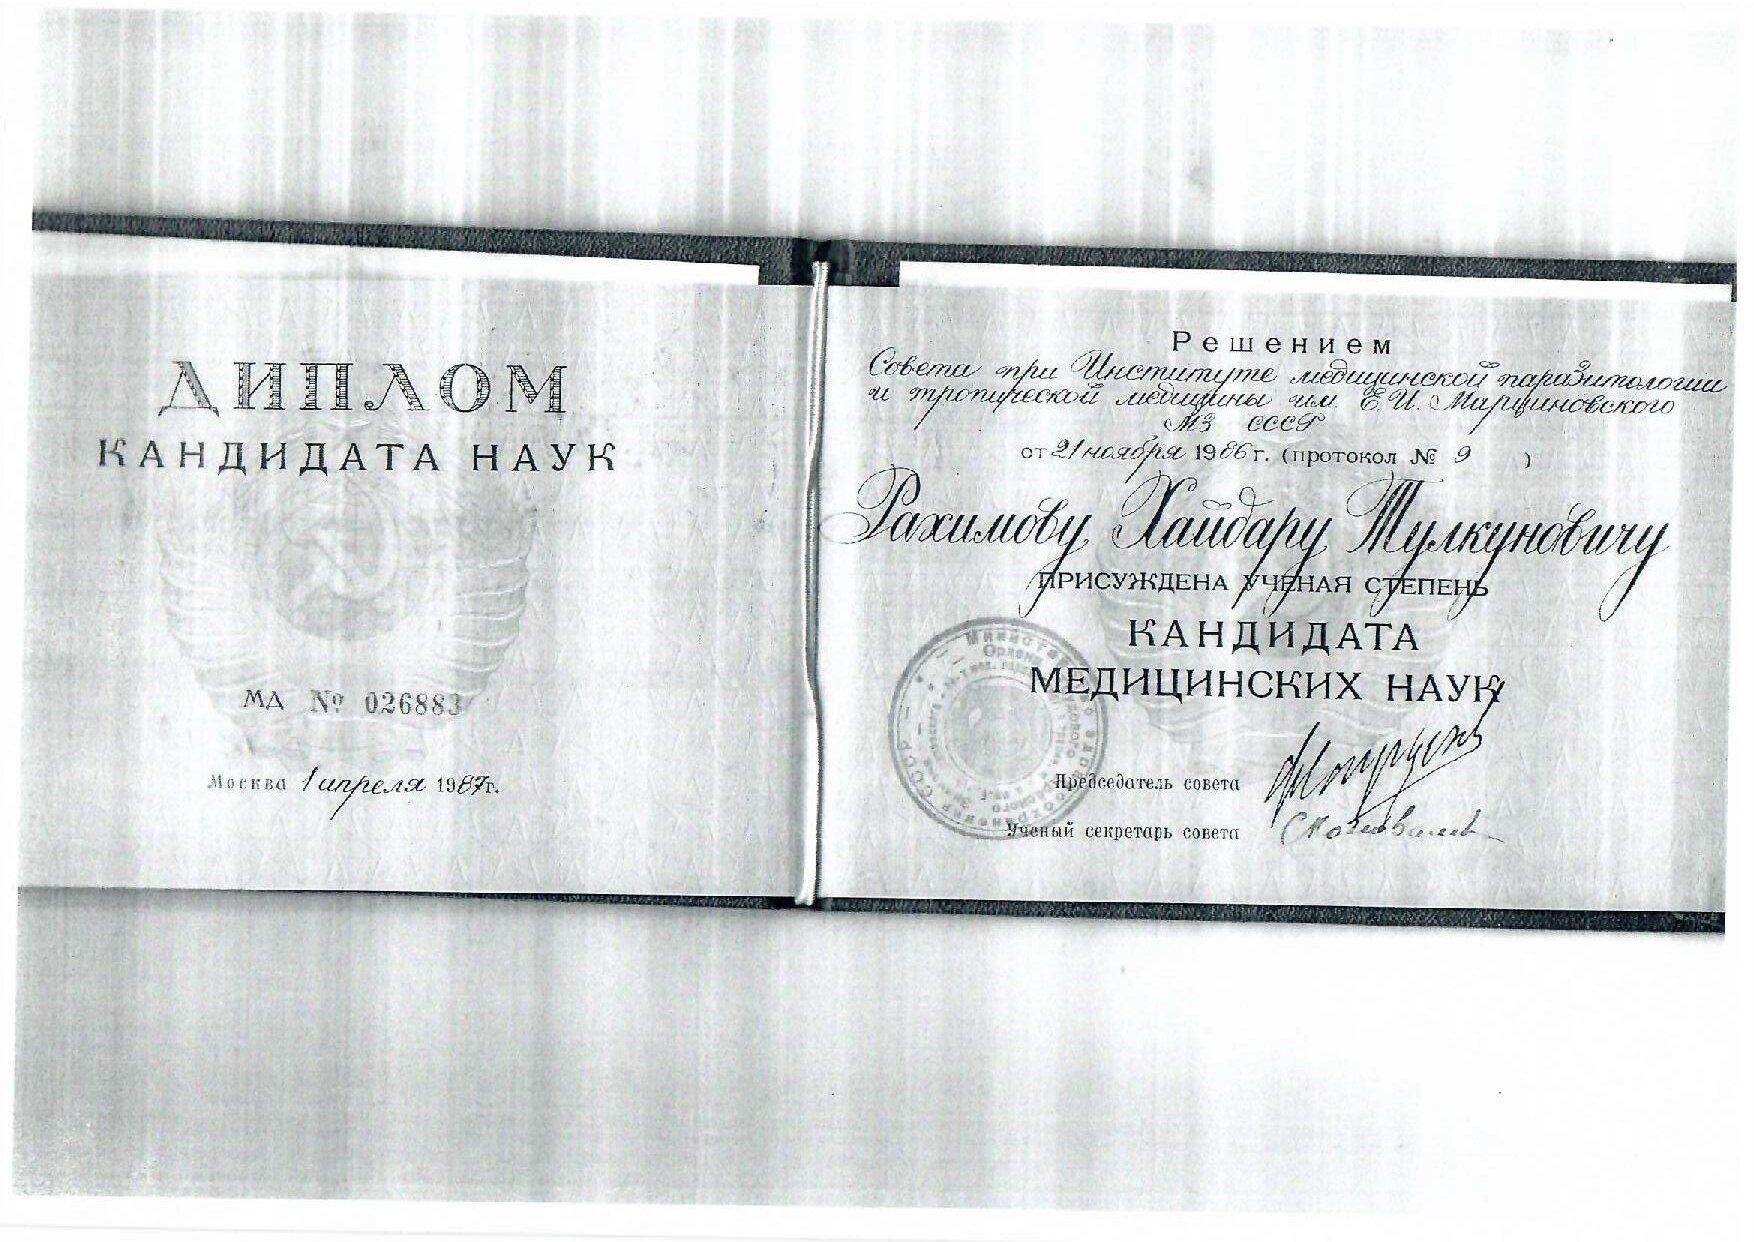 ДИПЛОМ
КАНДИДАТА НАУК
МД № 026883
Москва 1 апреля 1987г.
Решением
Совета при Институте медицинской паразитологии
и тропической медицины им. Е.И. Марциновского
МЗ СССР
от 21 ноября 1986 г. (протокол № 9 )
Рахимову Хайдару Тулкуновичу
ПРИСУЖДЕНА УЧЕНАЯ СТЕПЕНЬ
КАНДИДАТА
МЕДИЦИНСКИХ НАУК
Председатель совета
Ученый секретарь совета